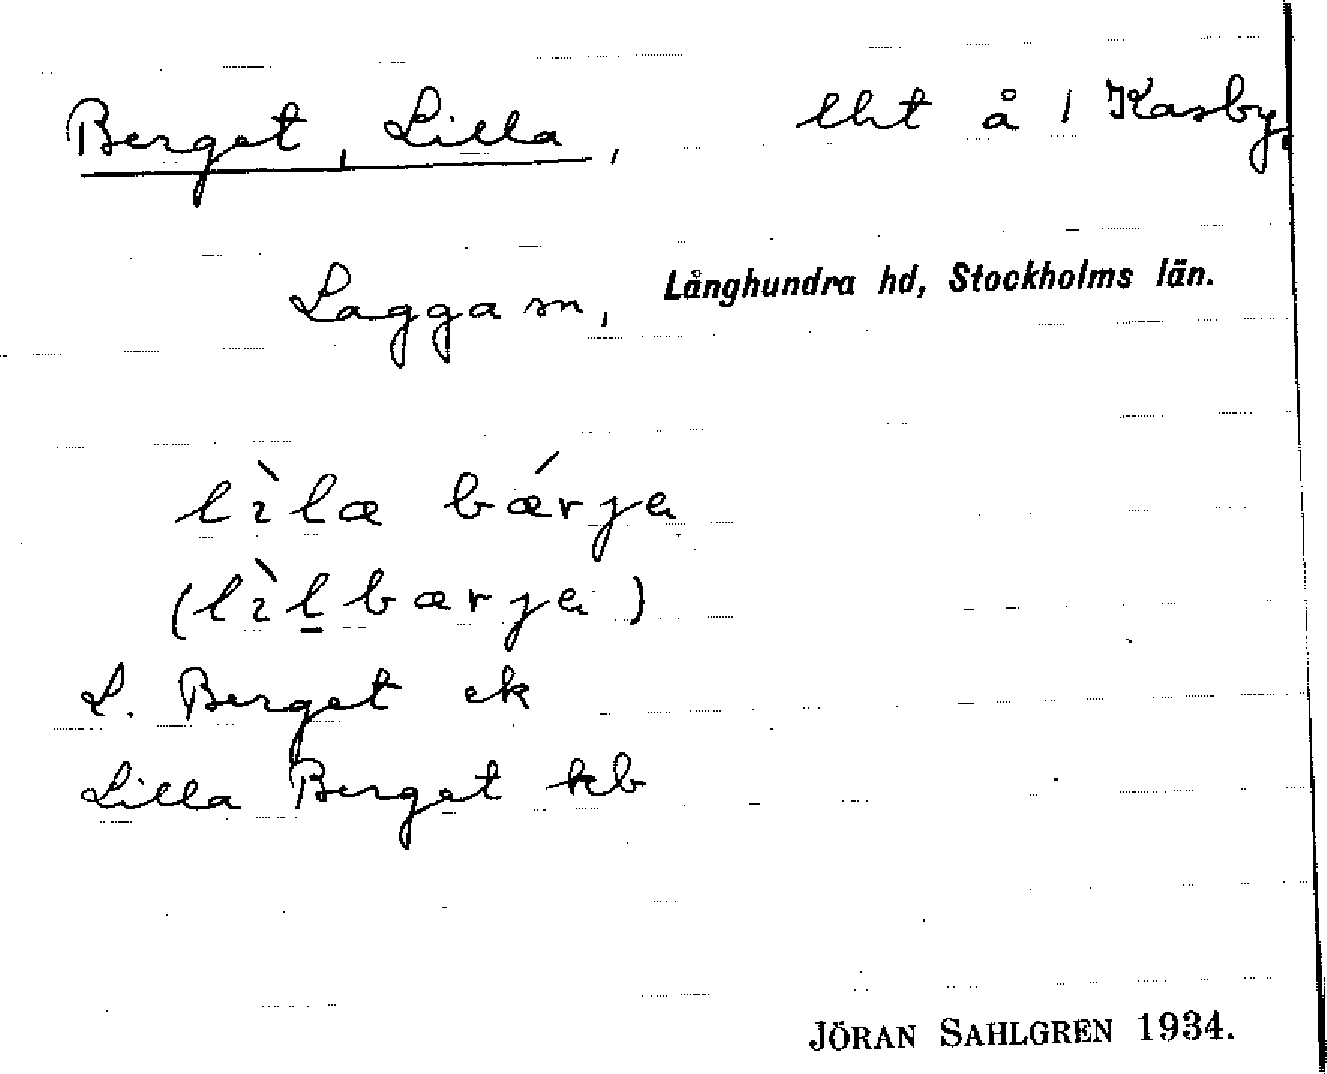 Berget, Lilla, lht å 1 Kasby,
Lagga sn, Långhundra hd, Stockholms län.
lìla bǽrjə
(lìl̲bærjə)
L. Berget ek
Lilla Berget kb
JÖRAN SAHLGREN 1934.